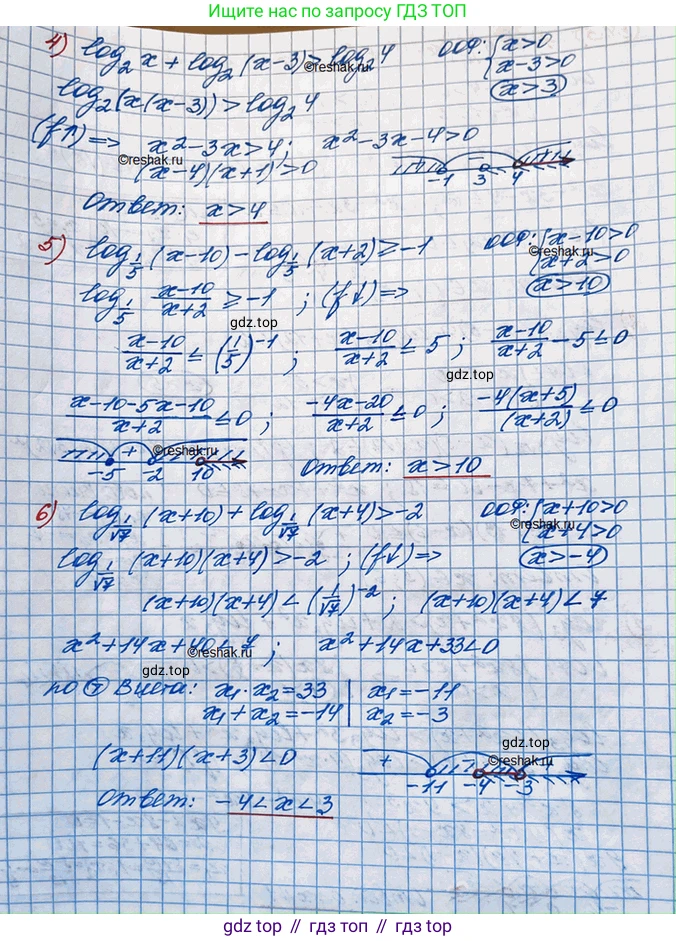 Ищите нас по запросу ГДЗ ТОП
4) log₂ x + log₂ (x-3) > log₂ 4 ООФ: {x>0
{x-3>0
©reshak.ru
log₂(x(x-3)) > log₂ 4 (x>3)
(f↑) => x²-3x>4; x²-3x-4>0
©reshak.ru
(x-4)(x+1)>0 -1 3 4
©reshak.ru
Ответ: x>4
5) log_{1/5} (x-10) - log_{1/5} (x+2) ≥ -1 ООФ: {x-10>0
{x+2>0
©reshak.ru
log_{1/5} (x-10)/(x+2) ≥ -1 ; (f↓) => (x>10)
gdz.top
(x-10)/(x+2) ≤ (1/5)⁻¹ ; (x-10)/(x+2) ≤ 5 ; (x-10)/(x+2) - 5 ≤ 0
gdz.top
(x-10-5x-10)/(x+2) ≤ 0 ; (-4x-20)/(x+2) ≤ 0 ; (-4(x+5))/(x+2) ≤ 0
+ ©reshak.ru
-5 -2 10 Ответ: x>10
6) log_{1/√7} (x+10) + log_{1/√7} (x+4) > -2 ООФ: {x+10>0
©reshak.ru
{x+4>0
log_{1/√7} (x+10)(x+4) > -2 ; (f↓) => (x>-4)
(x+10)(x+4) < (1/√7)⁻² ; (x+10)(x+4) < 7
x²+14x+40<7 ; x²+14x+33<0
©reshak.ru
gdz.top
по Т Виета: x₁·x₂=33 | x₁=-11
x₁+x₂=-14 | x₂=-3
gdz.top
(x+11)(x+3)<0 +
©reshak.ru
-11 -4 -3
Ответ: -4<x<3
gdz.top // гдз топ // gdz.top